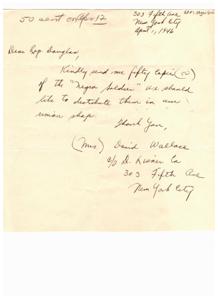 50 sent
303 Fifth Ave
New York City
April 1, 1946
Dear Rep Douglas,
Kindly send me fifty copies (50)
of the "Negro Soldier" We should
like to distribute them in our
union shop.
Thank You,
(Mrs) David Wallace
c/o D. Lisner Co
303 Fifth Ave
New York City